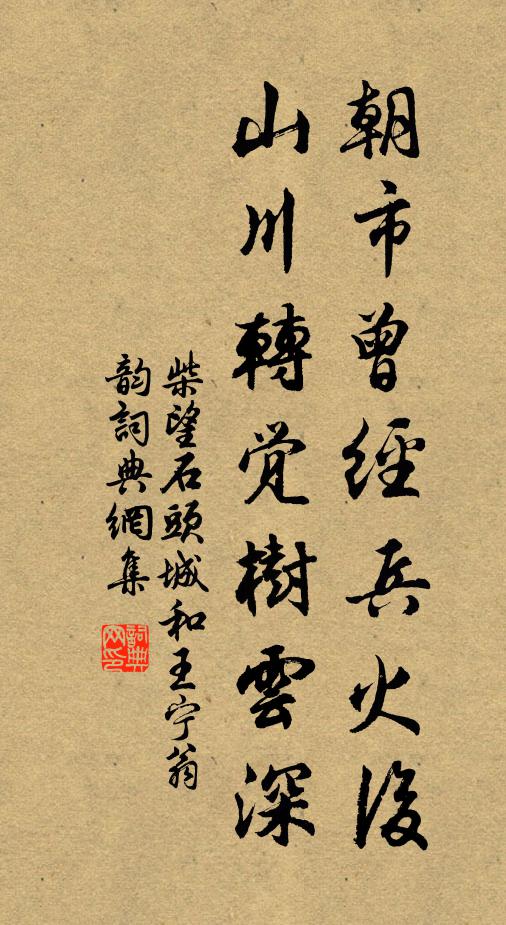 朝市曾經兵火後
山川轉覺樹雲深
柴望石頭城和王宁翁
韵詞典網集
詞典網印